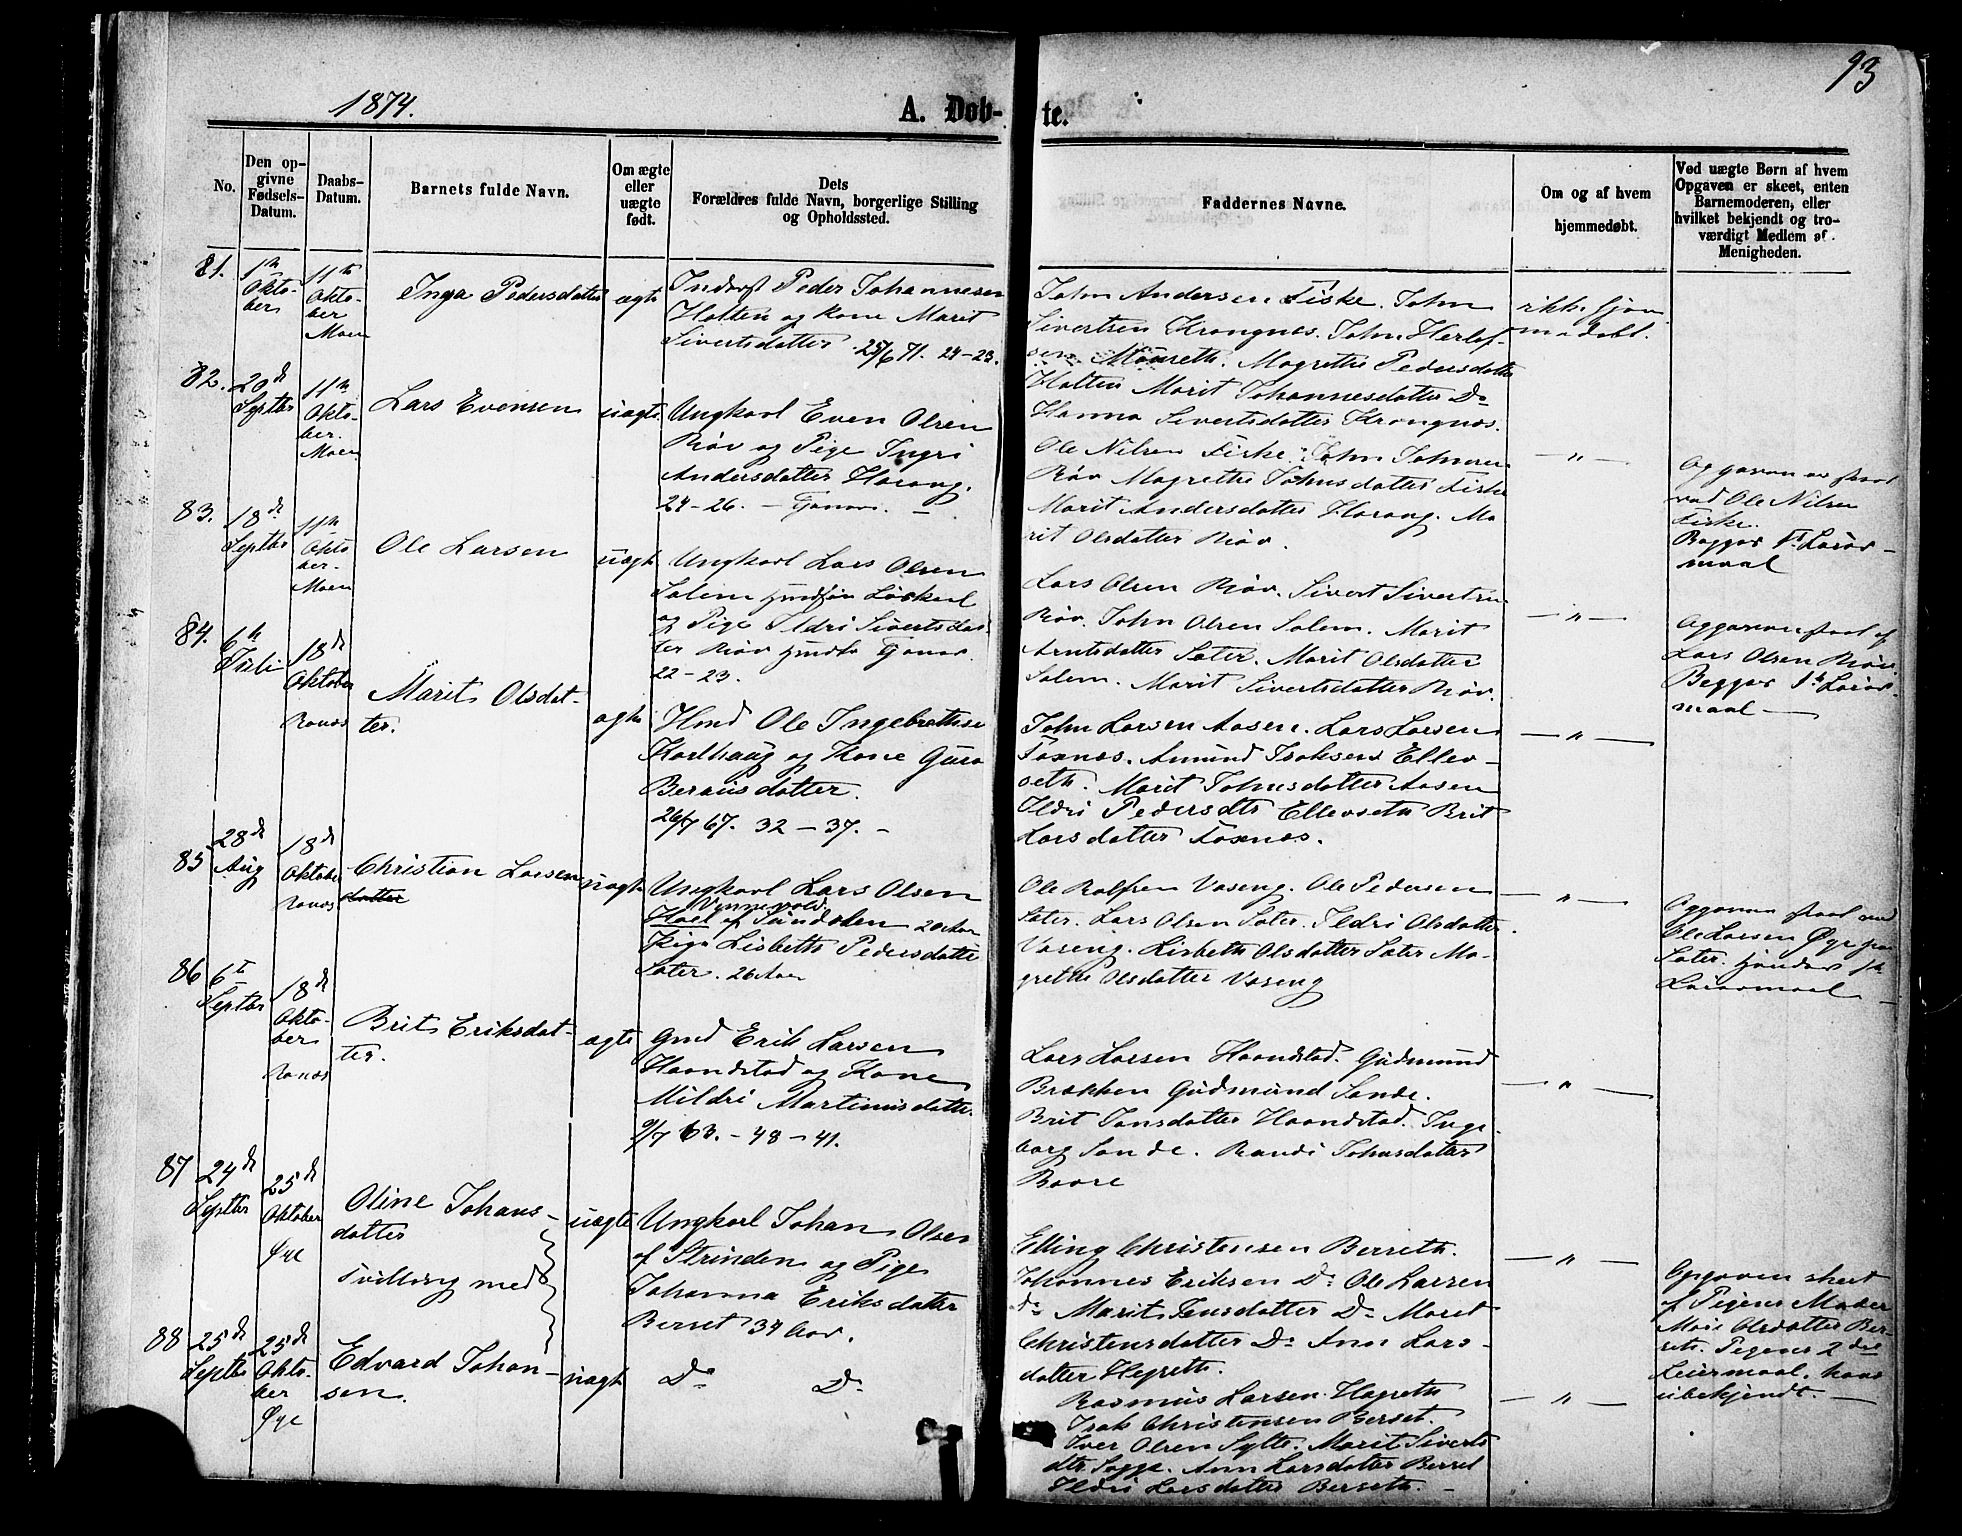 93
1874.
A. Døb-
te.
No.
Den op-
givne
Fødsels-
Datum.
Daabs-
Datum.
Barnets fulde Navn.
Om ægte
eller
uægte
født.
Dets
Forældres fulde Navn, borgerlige Stilling
og Opholdssted.
Faddernes Navne.
Om og af hvem
hjemmedøbt.
Ved uægte Børn af hvem
Opgaven er skeet, enten
Barnemoderen, eller
hvilket bekjendt og tro-
værdigt Medlem af
Menigheden.
81.
1ste
Okto-
ber
11te
Okto-
ber
Moen
Inga Pedersdatter
ægte
Inderst Peder Johannesen
Holten og Kone Marit
Sivertsdatter 25/6 71. 24-23.
John Andersen Fiske. John
Sivertsen Krongnæs. John Herlof-
sen Magrethe Pedersdatter
Holten Marit Johannesdatter Do
Hanna Sivertsdatter Krongnæs.
ikke hjem-
medøbt.
82.
20de
Septbr
11te
Okto-
ber.
Moen
Lars Evensen
uægte
Ungkarl Even Olsen
Røv og Pige Ingri
Andersdatter Harang.
24-26. -
Ole Nilsen Fiske. John Johnsen
Røv Magrethe Johnsdatter Fiske
Marit Andersdatter Harang. Ma-
rit Olsdatter Røv.
— " —
Opgaven er skeet
ved Ole Nilsen
Fiske.
Begges 1st Leier-
maal
83.
18de
Septbr
11te
Okto-
ber.
Moen
Ole Larsen
uægte
Ungkarl Lars Olsen
Solem
og Pige Ildri Sivertsdat-
ter Røv
22-23.
Lars Olsen Røv. Sivert Sivertsen
Røv. John Olsen Solem. Marit
Arntsdatter Sæter. Marit Olsdatter
Solem. Marit Sivertsdatter Røv.
— " —
Opgaven skeet af
Lars Olsen Røv
Begges 1st Leier-
maal —
84.
6te
Juli
18de
Oktober
Ranæs
Marit Olsdat-
ter.
ægte
Hmd Ole Ingebrethsen
Karlhaug og Kone Guro
Beraisdatter.
26/7 67. 32-37. -
John Larsen Aasen. Lars Larsen
Foxnæs. Amund Isaksen Ellev-
seth. Marit Johnsdatter Aasen
Ildri Pedersdtr Ellevseth Brit
Larsdatter Foxnæs.
— " —
85
28de
Aug
18de
Oktober
Ranæs
Christian Larsen
datter
uægte
Ungkarl Lars Olsen
Vennevold
Hoel af Sundalen 20 Aar
Pige Lisbeth Pedersdatter
Sæter. 26 Aar
Ole Rolfsen Vaseng. Ole Pedersen
Sæter. Lars Olsen Sæter. Ildri Olsdatter
Vaseng. Lisbeth Olsdatter Sæter Ma-
grethe Olsdatter Vaseng
— " —
Opgaven skeet ved
Ole Larsen Øye paa
Sæter.
Leiermaal —
86
6te
Septbr
18de
Okto-
ber
Ranæs
Brit Eriksdat-
ter.
ægte
Gmd Erik Larsen
Haandstad og Kone
Mildri Martinusdatter.
9/7 63. - 48-41.
Lars Larsen Haandstad. Gudmund
Brækken Gudmund Sande.
Brit Jonsdatter Haandstad. Inge-
borg Sande. Randi Johnsdatter
Bøvre
— " —
87
24de
Septbr
25de
Oktober
Øye
Oline Johans-
datter
Tvilling med
uægte
Ungkarl Johan Olsen
af Strinden og Pige
Johanna Eriksdatter
Berset 34 Aar.
Elling Christensen Berseth.
Johannes Eriksen Do Ole Larsen
Do Marit Jensdatter Do Marit
Christensdatter Do Ann Lars-
datter Hegreth.
— " —
Opgaven skeet
af Pigens Moder
Mari Olsdatter Ber-
seth. Pigens 2det
Leiermaal, hans
ubekjendt. —
88
25de
Septbr
25de
Okto-
ber
Øye
Edvard Johan-
sen.
uægte
Do Do
Rasmus Larsen Hagreth
Isak Christensen Berset.
Iver Olsen Sylte. Marit Siverts
dtr Sogge. Ann Larsdatter Berset
Ildri Larsdatter Berseth. —
— " —